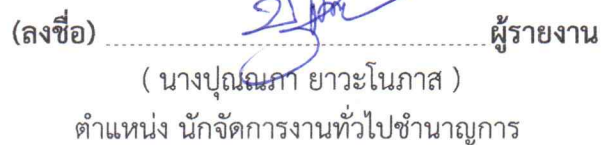 (ลงชื่อ) ........................................ ผู้รายงาน
( นางปุณณภา ยาวะโนภาส )
ตำแหน่ง นักจัดการงานทั่วไปชำนาญการ